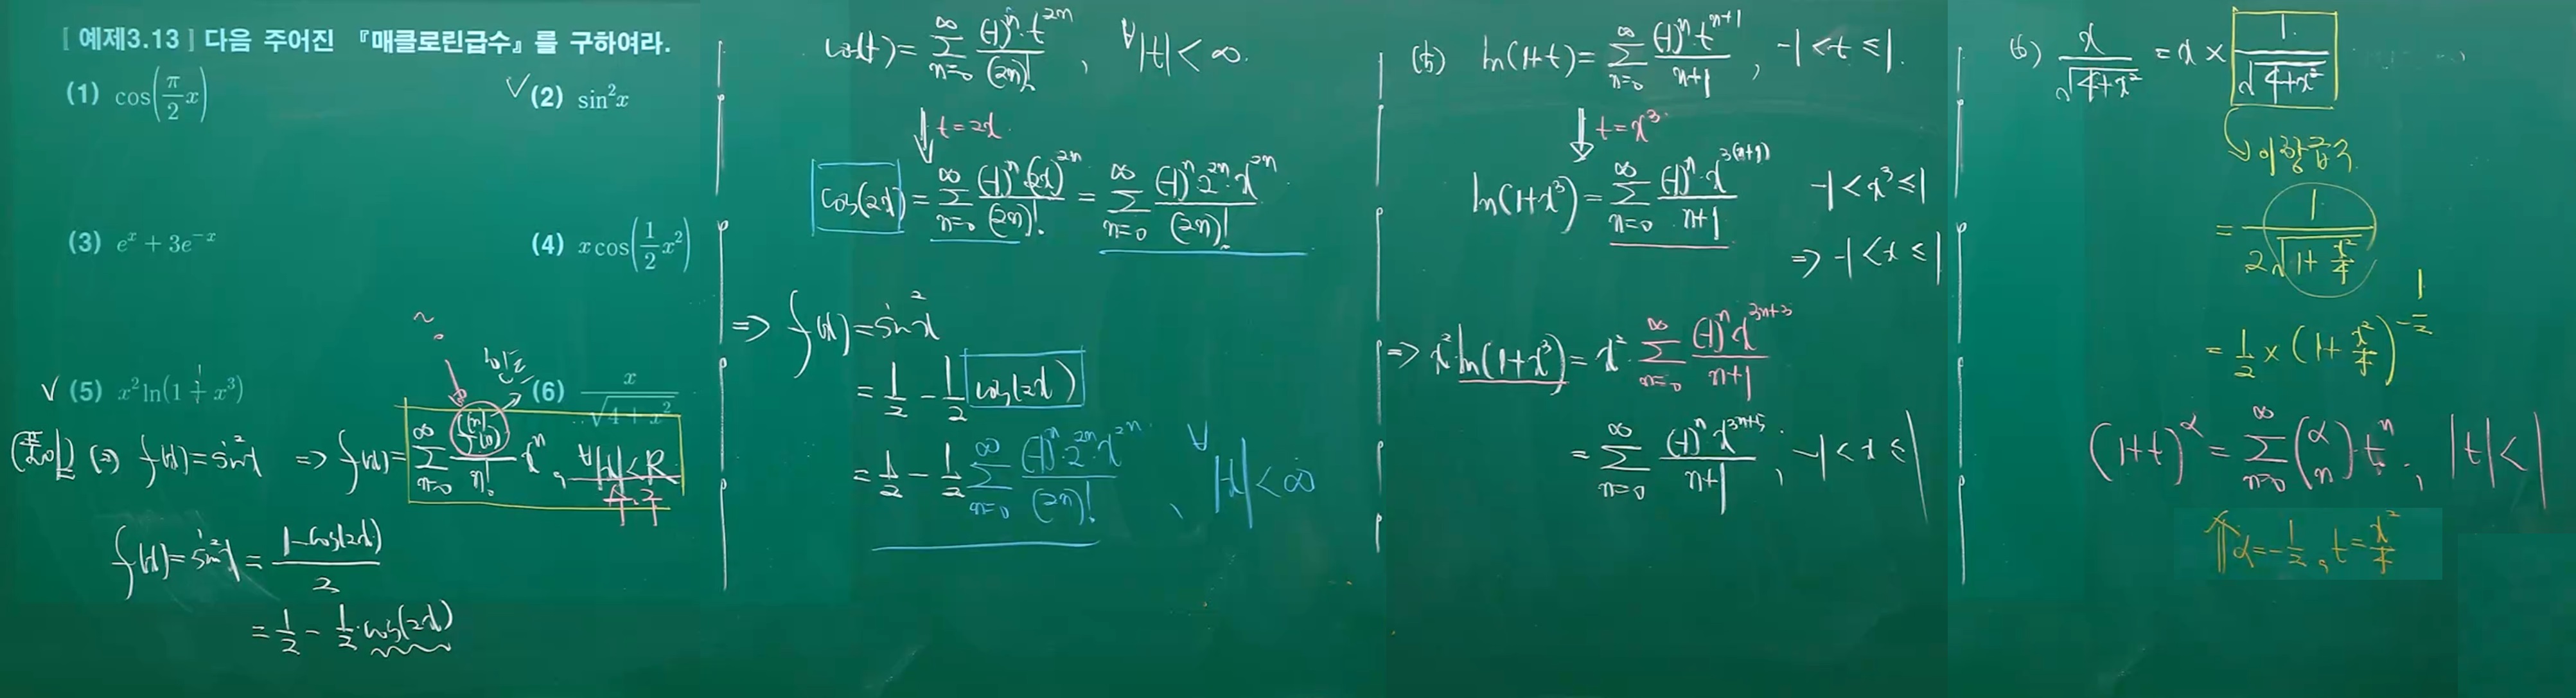 [ 예제3.13 ] 다음 주어진 『매클로린급수』를 구하여라.
(1) cos(π/2 x)
✓(2) sin²x
(3) eˣ + 3e⁻ˣ
(4) x cos(1/2 x²)
✓(5) x² ln(1 + x³)
(6) x/√(4 + x²)
(풀이) (2) f(x) = sin²x ⇒ f(x) = Σ_{n=0}^{∞} f⁽ⁿ⁾(0)/n! xⁿ, ∀|x| < R
f(x) = sin²x = (1 - cos(2x))/2
= 1/2 - 1/2 · cos(2x)
cos(t) = Σ_{n=0}^{∞} (-1)ⁿ · t²ⁿ/(2n)!, ∀|t| < ∞.
↓ t = 2x.
cos(2x) = Σ_{n=0}^{∞} (-1)ⁿ · (2x)²ⁿ/(2n)! = Σ_{n=0}^{∞} (-1)ⁿ · 2²ⁿ · x²ⁿ/(2n)!
⇒ f(x) = sin²x
= 1/2 - 1/2 cos(2x)
= 1/2 - 1/2 Σ_{n=0}^{∞} (-1)ⁿ · 2²ⁿ · x²ⁿ/(2n)!, ∀|x| < ∞
(5) ln(1+t) = Σ_{n=0}^{∞} (-1)ⁿ tⁿ⁺¹/(n+1), -1 < t ≤ 1.
↓ t = x³.
ln(1+x³) = Σ_{n=0}^{∞} (-1)ⁿ · x³⁽ⁿ⁺¹⁾/(n+1) -1 < x³ ≤ 1
⇒ -1 < x ≤ 1
⇒ x² ln(1+x³) = x² · Σ_{n=0}^{∞} (-1)ⁿ x³ⁿ⁺³/(n+1)
= Σ_{n=0}^{∞} (-1)ⁿ x³ⁿ⁺⁵/(n+1), -1 < x ≤ 1
(6) x/√(4+x²) = x × 1/√(4+x²)
↳ 이항급수.
= 1/(2√(1 + x²/4))
= 1/2 × (1 + x²/4)^(-1/2)
(1+t)^α = Σ_{n=0}^{∞} (α n) · tⁿ, |t| < 1
⇑ α = -1/2, t = x²/4